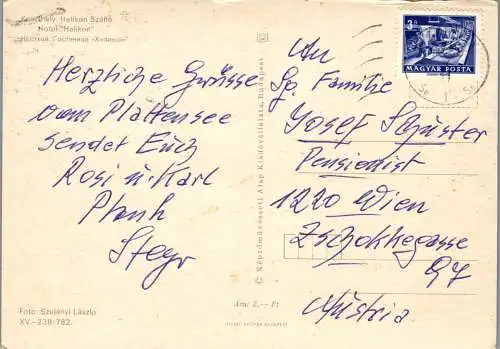 Keszthely. Helikon Szálló
Hotel "Helikon"
Кестхей. Гостиница «Хеликон»
Herzliche Grüsse
vom Plattensee
sendet Euch
Rosi u. Karl
Plank
Steyr
Foto: Szelényi László
XV.—238/782.
© Képzőművészeti Alap Kiadóvállalata, Budapest
Ára: 2.— Ft
3 Ft
MAGYAR POSTA
An
Sg. Familie
Josef Schuster
Pensionist
1220 Wien
Zschokkegasse
97
Austria